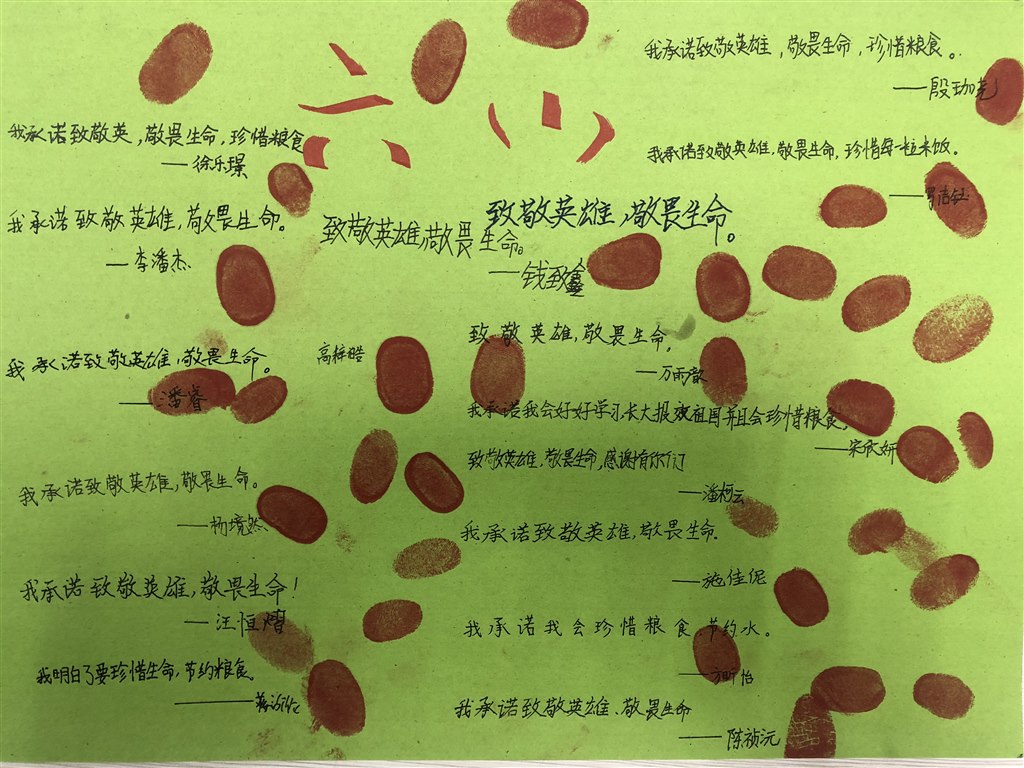 我承诺致敬英雄，敬畏生命，珍惜粮食。
——殷珈尧
我承诺致敬英，敬畏生命，珍惜粮食
——徐乐璟
我承诺致敬英雄，敬畏生命，珍惜每一粒米饭。
——罗洁钰
我承诺致敬英雄，敬畏生命。
——李潘杰
致敬英雄，敬畏生命。
致敬英雄，敬畏生命。
——钱致鑫
致敬英雄，敬畏生命。
——万雨歆
我承诺致敬英雄，敬畏生命。
——潘睿
高梓晧
我承诺我会好好学习长大报效祖国并且会珍惜粮食。
——宋欣妍
致敬英雄，敬畏生命，感谢有你们
——潘柯云
我承诺致敬英雄，敬畏生命。
——杨境然
我承诺致敬英雄，敬畏生命。
——施佳伲
我承诺致敬英雄，敬畏生命！
——汪恒熠
我承诺我会珍惜粮食，节约水。
——方昕怡
我明白了要珍惜生命，节约粮食
我承诺致敬英雄、敬畏生命
——陈祯沅